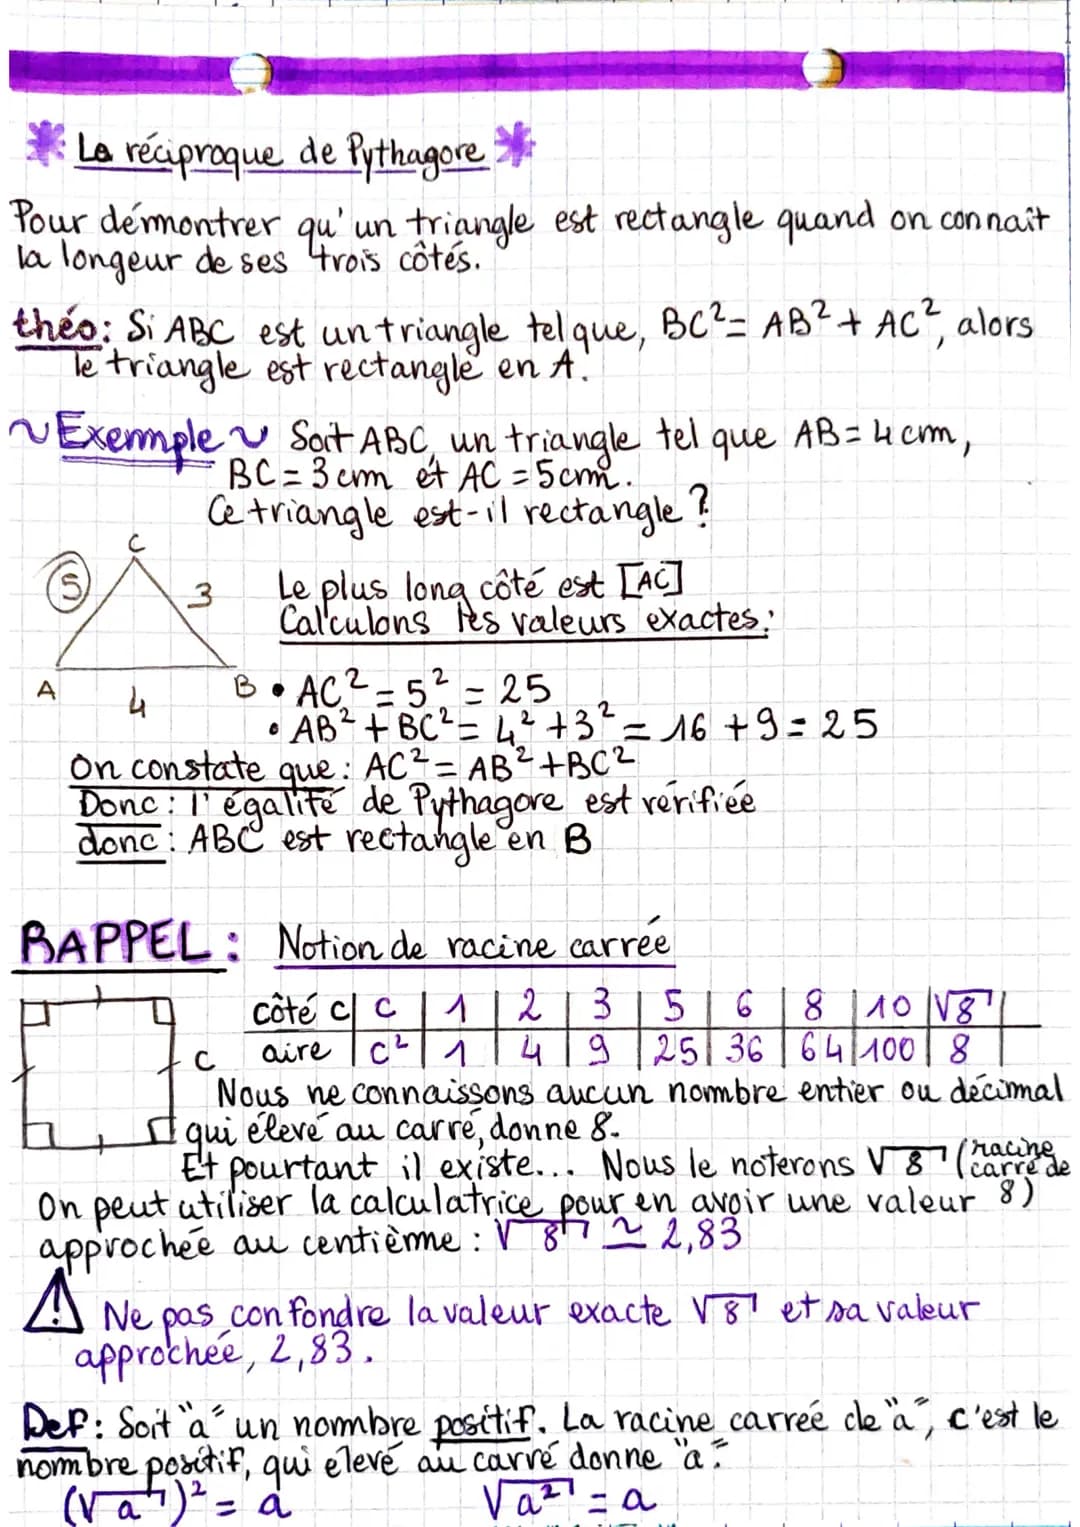 * La réciproque de Pythagore *
Pour démontrer qu'un triangle est rectangle quand on connaît
la longeur de ses trois côtés.
théo: Si ABC est un triangle tel que, BC² = AB² + AC², alors
le triangle est rectangle en A.
~ Exemple ~ Soit ABC, un triangle tel que AB = 4 cm,
BC = 3 cm et AC = 5 cm.
Ce triangle est-il rectangle ?
C
5
3
A
4
B
Le plus long côté est [AC]
Calculons les valeurs exactes:
• AC² = 5² = 25
• AB² + BC² = 4² + 3² = 16 + 9 = 25
On constate que : AC² = AB² + BC²
Donc : l'égalité de Pythagore est vérifiée
donc : ABC est rectangle en B
RAPPEL : Notion de racine carrée
côté c | c | 1 | 2 | 3 | 5 | 6 | 8 | 10 | √8 |
aire | c² | 1 | 4 | 9 | 25 | 36 | 64 | 100 | 8 |
c
Nous ne connaissons aucun nombre entier ou décimal
qui élevé au carré, donne 8.
Et pourtant il existe... Nous le noterons √8 (racine carré de 8)
On peut utiliser la calculatrice pour en avoir une valeur
approchée au centième : √8 ≃ 2,83
⚠ Ne pas confondre la valeur exacte √8 et sa valeur
approchée, 2,83.
Def : Soit "a" un nombre positif. La racine carreé de "a", c'est le
nombre positif, qui elevé au carré donne "a".
(√a)² = a √a² = a